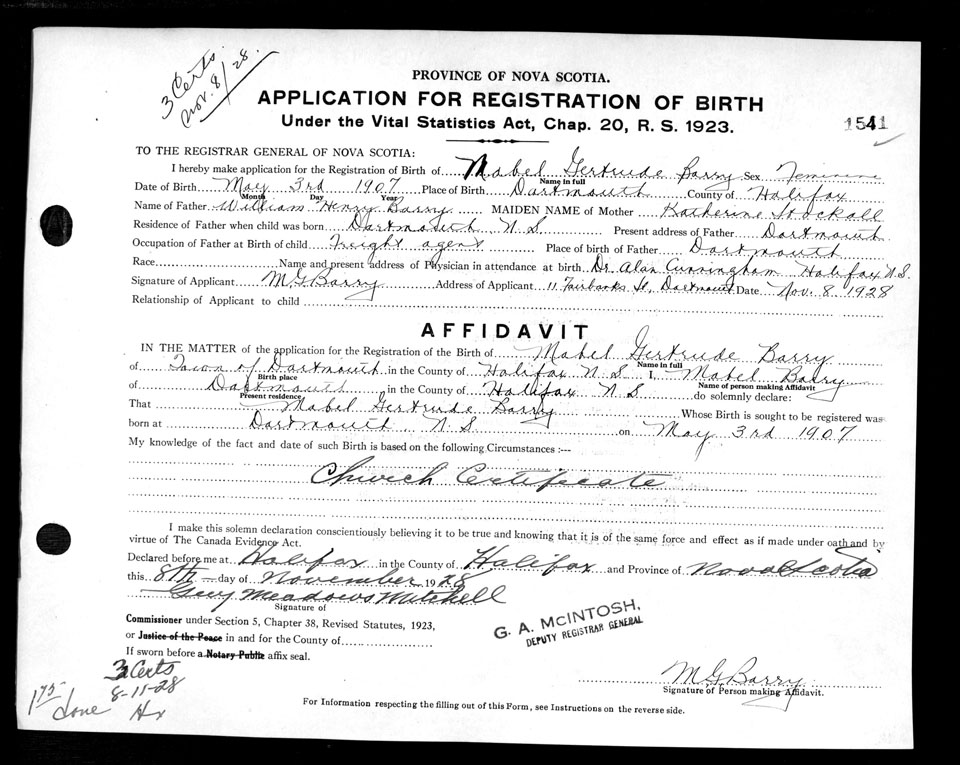 3 Certs.
Nov. 8/28.
PROVINCE OF NOVA SCOTIA.
APPLICATION FOR REGISTRATION OF BIRTH
Under the Vital Statistics Act, Chap. 20, R. S. 1923.
1541
TO THE REGISTRAR GENERAL OF NOVA SCOTIA:
I hereby make application for the Registration of Birth of Mabel Gertrude Barry Sex Feminine
Name in full
Date of Birth May 3rd 1907 Place of Birth Dartmouth County of Halifax
Month Day Year
Name of Father William Henry Barry MAIDEN NAME of Mother Katherine Stockall
Residence of Father when child was born Dartmouth N.S. Present address of Father Dartmouth
Occupation of Father at Birth of child Freight agent Place of birth of Father Dartmouth
Race Name and present address of Physician in attendance at birth Dr. Alan Cunningham Halifax N.S.
Signature of Applicant M G Barry Address of Applicant 11 Fairbanks St, Dartmouth Date Nov. 8 1928
Relationship of Applicant to child
AFFIDAVIT
IN THE MATTER of the application for the Registration of the Birth of Mabel Gertrude Barry
Name in full
of Town of Dartmouth in the County of Halifax N S I, Mabel Barry
Birth place Name of person making Affidavit
of Dartmouth in the County of Halifax N S do solemnly declare:
Present residence
That Mabel Gertrude Barry Whose Birth is sought to be registered was
born at Dartmouth N S on May 3rd 1907
My knowledge of the fact and date of such Birth is based on the following Circumstances :--
Church Certificate
I make this solemn declaration conscientiously believing it to be true and knowing that it is of the same force and effect as if made under oath and by
virtue of The Canada Evidence Act.
Declared before me at Halifax in the County of Halifax and Province of Nova Scotia
this 8th day of November 1928
Guy Meadows Mitchell
Signature of
Commissioner under Section 5, Chapter 38, Revised Statutes, 1923,
or Justice of the Peace in and for the County of
If sworn before a Notary Public affix seal.
G. A. McINTOSH,
DEPUTY REGISTRAR GENERAL
M G Barry
Signature of Person making Affidavit.
3 Certs
8-11-28
1 75
done Hx
For Information respecting the filling out of this Form, see Instructions on the reverse side.